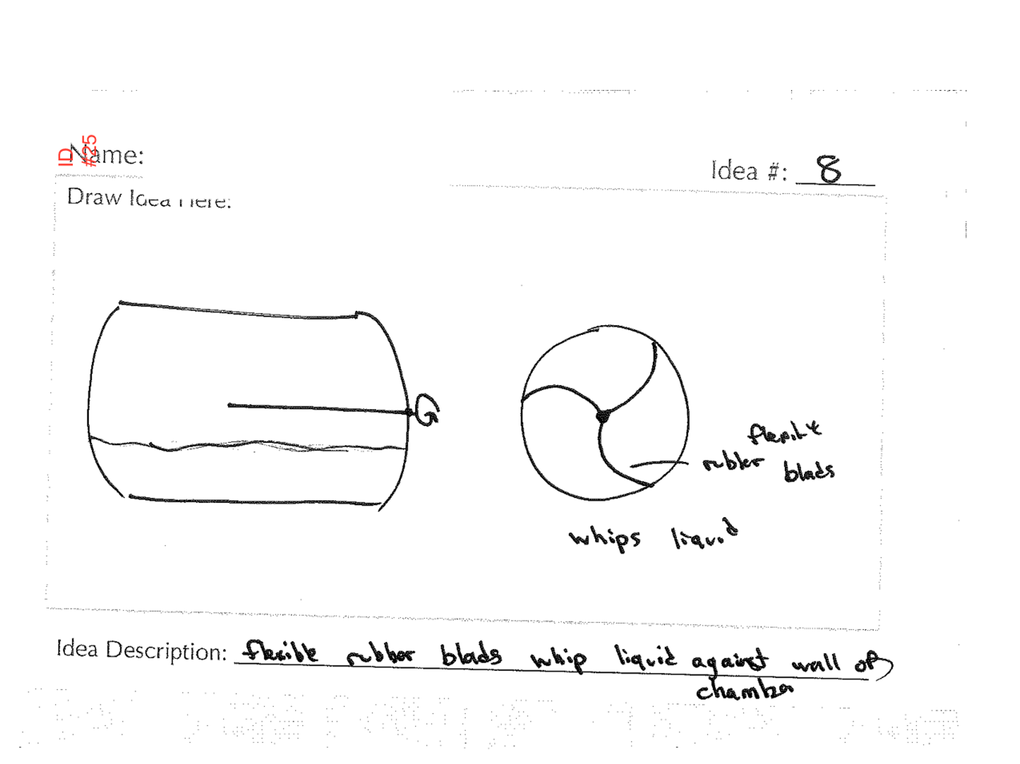 ID
#25
Name:
Idea #: 8
Draw Idea Here:
flexible
rubber blads
whips liquid
Idea Description: flexible rubber blads whip liquid against wall of
chamber